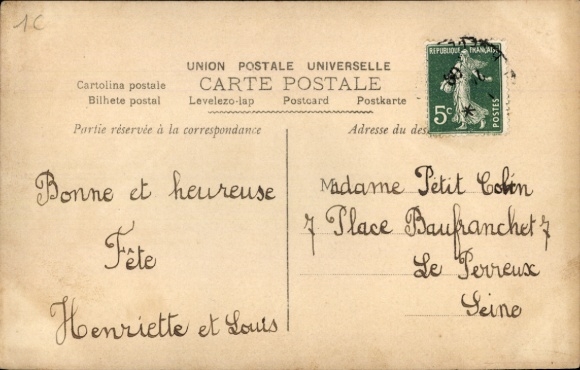 1C
UNION POSTALE UNIVERSELLE
CARTE POSTALE
Cartolina postale
Bilhete postal Levelezo-lap Postcard Postkarte
REPUBLIQUE FRANÇAISE
5c
POSTES
Partie réservée à la correspondance
Adresse du des
Bonne et heureuse
Fête
Henriette et Louis
Madame Petit Colin
7 Place Baufranchet 7
Le Perreux
Seine